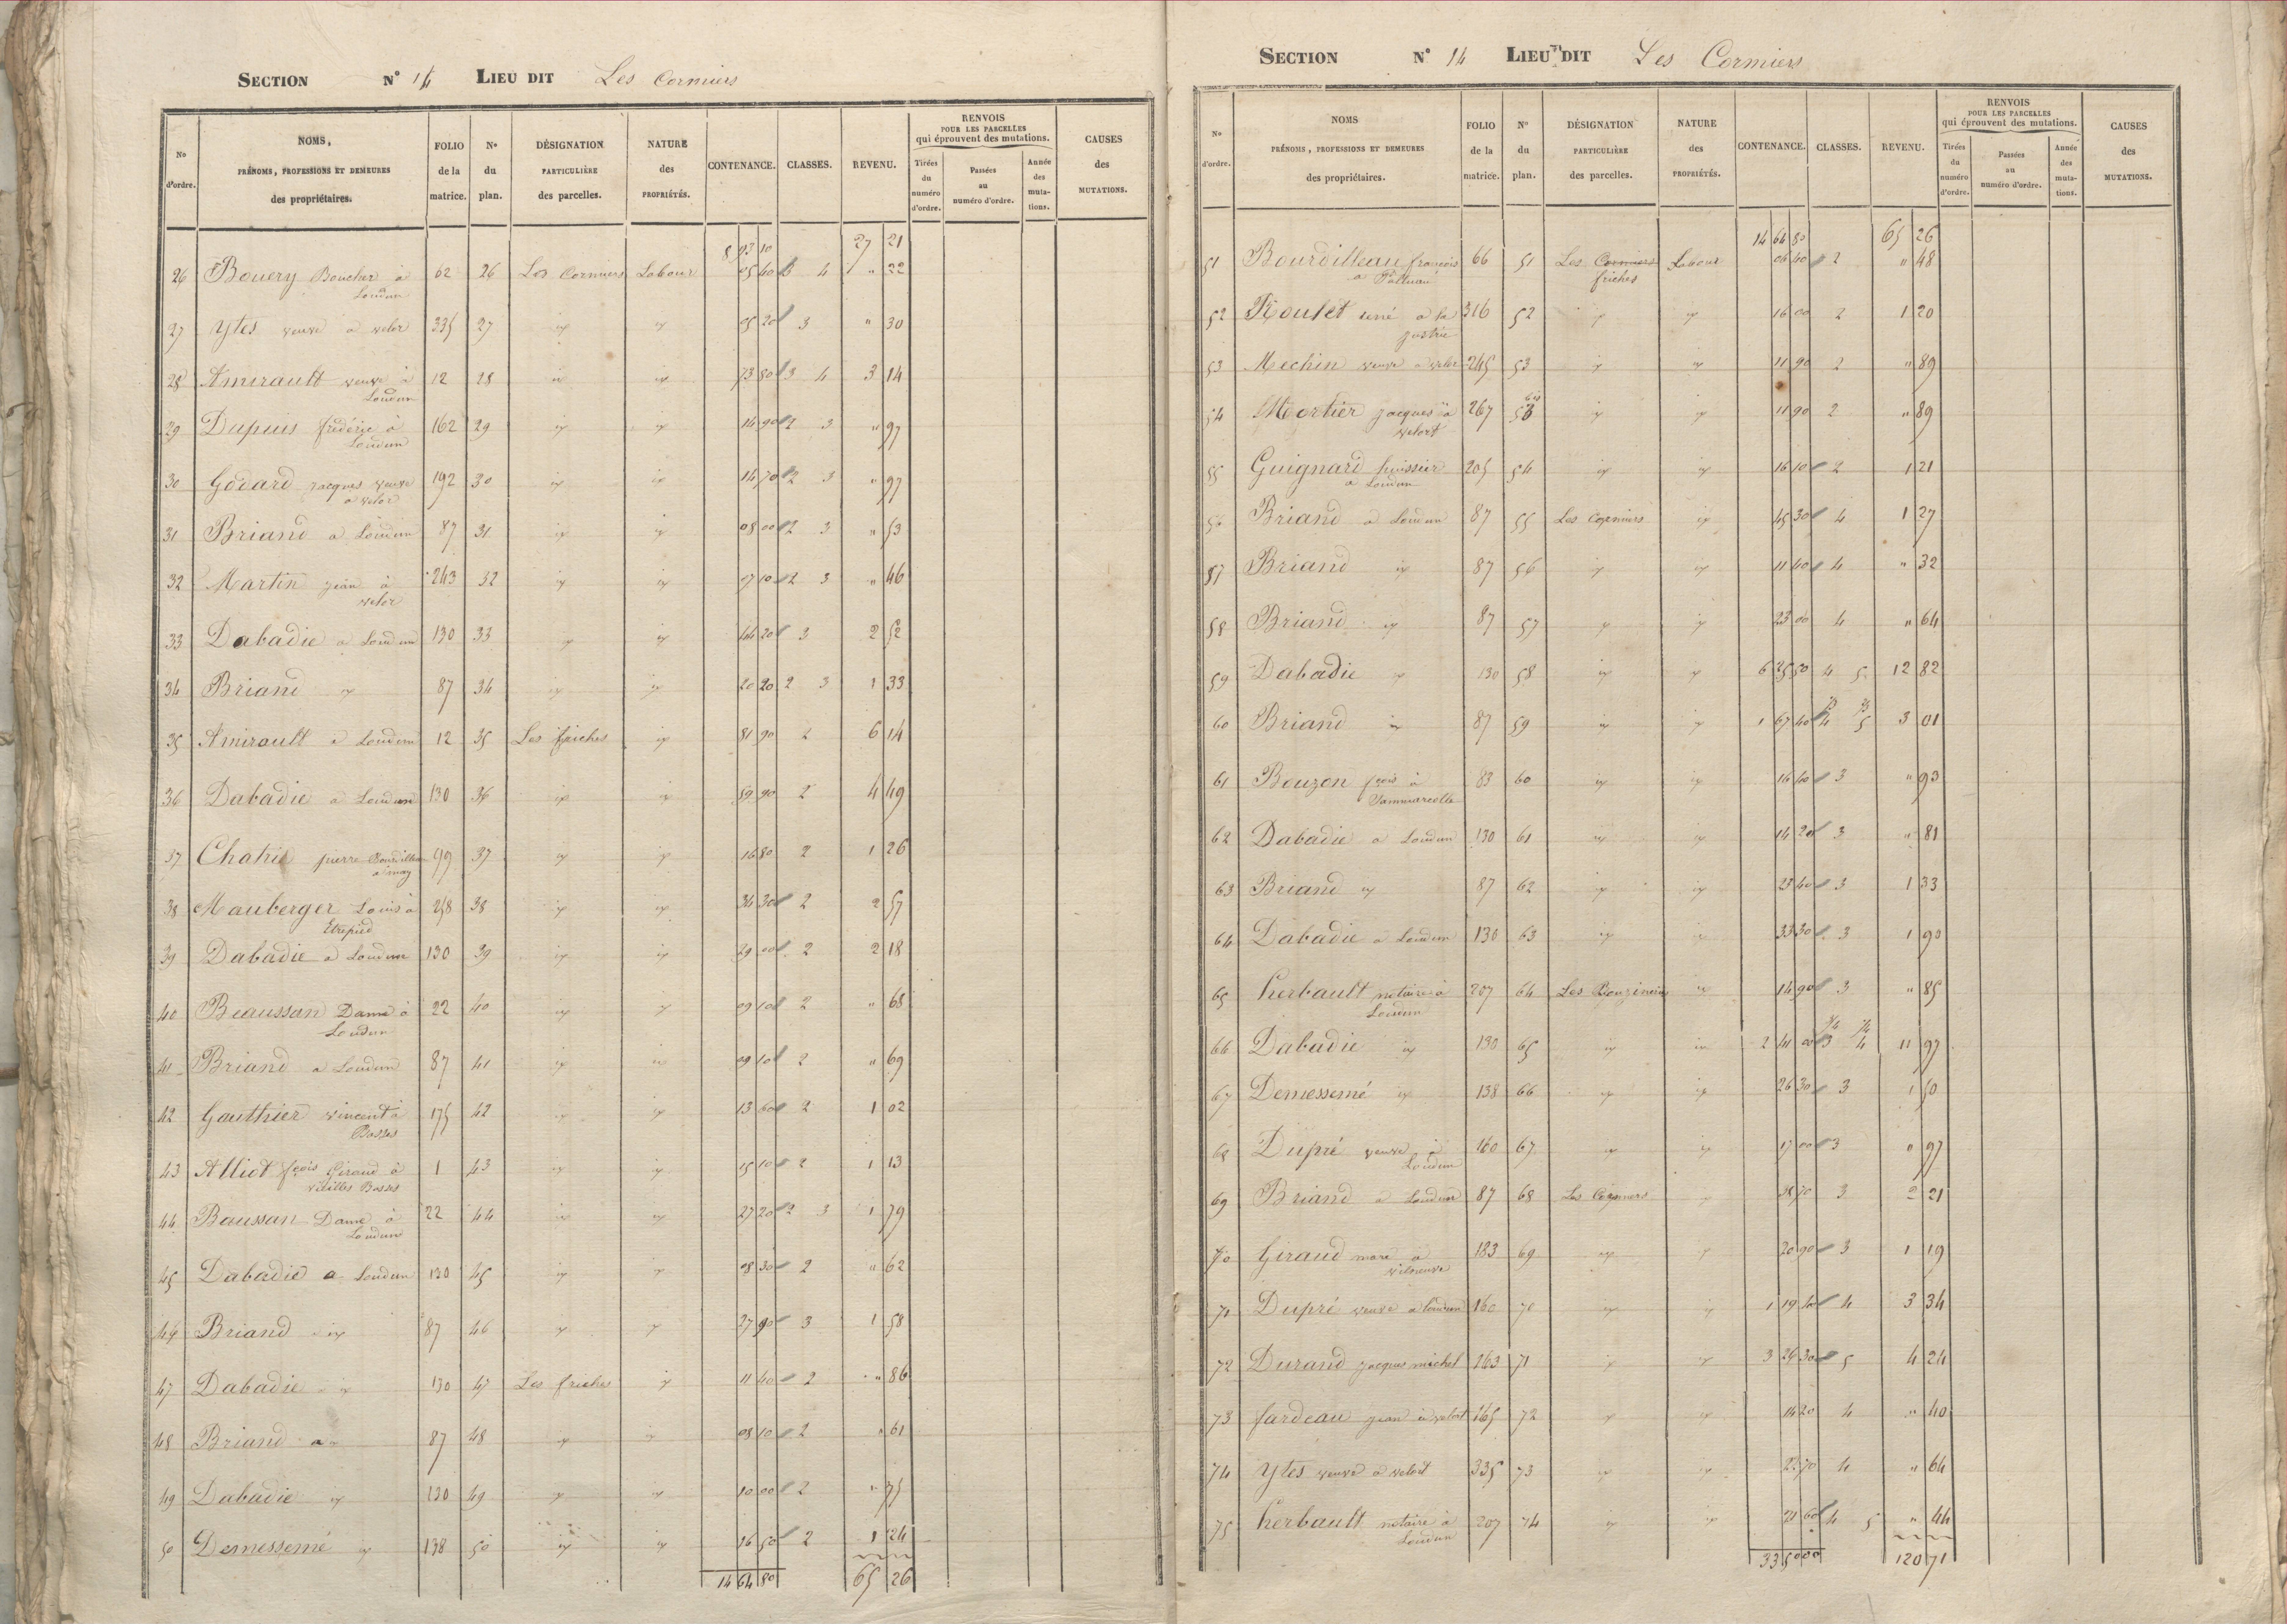 SECTION N° 14 LIEU DIT Les Cormiers
No d'ordre. NOMS, PRÉNOMS, PROFESSIONS ET DEMEURES des propriétaires. FOLIO de la matrice. No du plan. DÉSIGNATION PARTICULIÈRE des parcelles. NATURE des PROPRIÉTÉS. CONTENANCE. CLASSES. REVENU. RENVOIS POUR LES PARCELLES qui éprouvent des mutations. Tirées du numéro d'ordre. Passées au numéro d'ordre. Année des mutations. CAUSES des MUTATIONS.
8 93 10 27 21
26 Bouery Boucher à Loudun 62 26 Les Cormiers Labour 05 40 3 4 " 22
27 Ytes veuve a velor 335 27 id id 05 20 3 " 30
28 Amirault veuve à Loudun 12 28 id id 73 80 3 4 3 14
29 Dupuis frédéric à Loudun 162 29 id id 14 90 2 3 " 97
30 Godard jacques veuve a velor 192 30 id id 14 70 2 3 " 97
31 Briand a Loudun 87 31 id id 08 00 2 3 " 53
32 Martin jean à velor 243 32 id id 07 10 2 3 " 46
33 Dabadie a Loudun 130 33 id id 44 20 3 2 52
34 Briand id 87 34 id id 20 20 2 3 1 33
35 Amirault a Loudun 12 35 Les friches id 81 90 2 6 14
36 Dabadie a Loudun 130 36 id id 59 90 2 4 49
37 pierre 99 37 id id 16 80 2 1 26
38 Mauberger Louis à Etrepied 258 38 id id 34 30 2 2 57
39 Dabadie a Loudun 130 39 id id 29 00 2 2 18
40 Beaussan Dame à Loudun 22 40 id id 09 10 2 " 68
41 Briand a Loudun 87 41 id id 09 10 2 " 69
42 Gauthier vincent à Bosses 175 42 id id 13 60 2 1 02
43 Alliot fçois Giraud à vieilles Bosses 1 43 id id 15 10 2 1 13
44 Baussan Dame à Loudun 22 44 id id 27 20 2 3 1 79
45 Dabadie a Loudun 130 45 id id 08 30 2 " 62
46 Briand id 87 46 id id 27 90 3 1 58
47 Dabadie id 130 47 Les friches id 11 40 2 " 86
48 Briand 87 48 id id 08 10 2 " 61
49 Dabadie id 130 49 id id 10 00 2 " 75
50 Demessemé id 138 50 id id 16 50 2 1 24
14 64 80 65 26
SECTION N° 14 LIEU DIT Les Cormiers
No d'ordre. NOMS PRÉNOMS, PROFESSIONS ET DEMEURES des propriétaires. FOLIO de la matrice. No du plan. DÉSIGNATION PARTICULIÈRE des parcelles. NATURE des PROPRIÉTÉS. CONTENANCE. CLASSES. REVENU. RENVOIS POUR LES PARCELLES qui éprouvent des mutations. Tirées du numéro d'ordre. Passées au numéro d'ordre. Année des mutations. CAUSES des MUTATIONS.
14 64 80 65 26
51 Bourdilleau françois a 66 51 Les Cormiers friches Labour 06 40 2 " 48
52 Roulet rené a la 316 52 id id 16 00 2 1 20
53 Mechin veuve a velor 245 53 id id 11 90 2 " 89
54 Mortier jacques à velort 267 53 bis id id 11 90 2 " 89
55 Guignard huissier a Loudun 205 54 id id 16 10 2 1 21
56 Briand a Loudun 87 55 Les Cormiers id 45 30 4 1 27
57 Briand id 87 56 id id 11 40 4 " 32
58 Briand id 87 57 id id 23 00 4 " 64
59 Dabadie id 130 58 id id 6 35 50 4 5 12 82
60 Briand id 87 59 id id 1 67 40 4 5 3 01
61 Bouzon fçois à Sammarcolle 83 60 id id 16 40 3 " 93
62 Dabadie a Loudun 130 61 id id 14 20 3 " 81
63 Briand id 87 62 id id 23 40 3 1 33
64 Dabadie a Loudun 130 63 id id 33 30 3 1 90
65 herbault notaire à Loudun 207 64 Les id 14 90 3 " 85
66 Dabadie id 130 65 id id 2 41 00 3 4 11 97
67 Demessemé id 138 66 id id 26 30 3 1 50
68 Dupré veuve à Loudun 160 67 id id 17 00 3 " 97
69 Briand a Loudun 87 68 Les Cormiers id 38 70 3 2 21
70 Giraud marc a 183 69 id id 20 90 3 1 19
71 Dupré veuve a loudun 160 70 id id 1 19 40 4 3 34
72 Durand jacques michel 163 71 id id 3 26 30 5 4 24
73 fardeau jean à velort 165 72 id id 14 20 4 " 40
74 Ytes veuve a velort 335 73 id id 22 70 4 " 64
75 herbault notaire à Loudun 207 74 id id 21 60 4 5 " 44
33 50 00 120 71